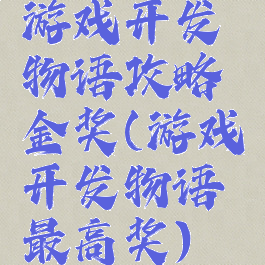 游戏开发
物语攻略
金奖(游戏
开发物语
最高奖)